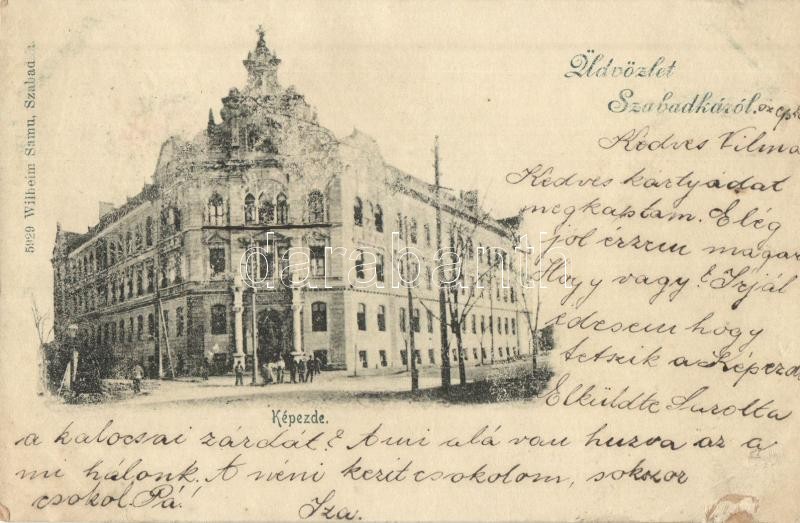 5929 Wilheim Samu, Szabad
Üdvözlet
Szabadkáról.
Kedves Vilma
Kedves kártyádat
megkaptam. Elég
jól érzem magam
Hogy vagy? Írjál
édesem hogy
tetszik a Képezde
Elküldte Sarolta
a kalocsai zárdát? A mi alá van huzva az a
mi hálonk. A néni kezit csokolom, sokszor
csokol Pá!
Iza.
Képezde.
darabanth